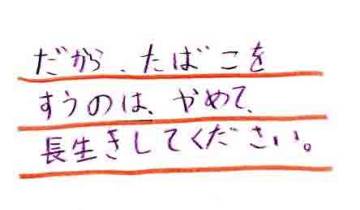 だから、たばこを
すうのは、やめて、
長生きしてください。